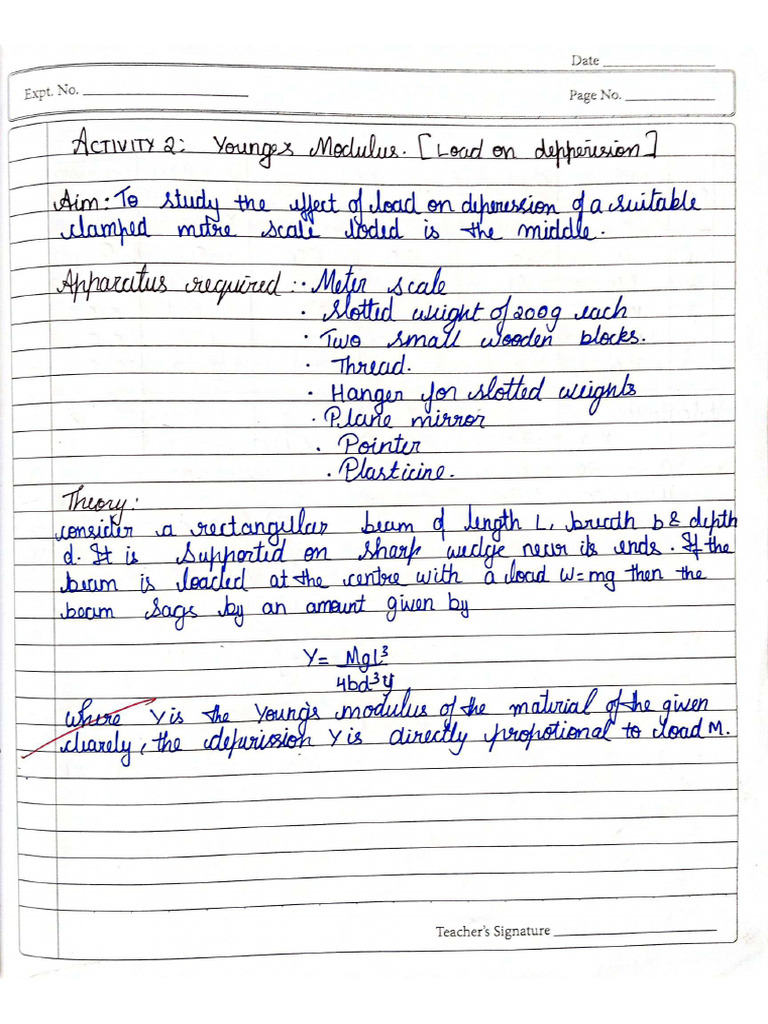 Date
Expt. No.
Page No.
ACTIVITY 2: Younges Modulus. [Load on depperission]
Aim: To study the effect of load on deperession of a suitable
clamped metre scale loded is the middle.
Apparatus required :· Meter scale
· Slotted weight of 200g each
· Two small wooden blocks.
· Thread.
· Hanger for slotted weights
· Plane mirror
· Pointer
· Plasticine.
Theory:
consider a rectangular beam of length L, breadth b & depth
d. It is supported on sharp wedge near its ends. If the
beam is loaded at the centre with a load W=mg then the
beam sags by an amount given by
Y= MgL³
4bd³y
where Y is the Youngs modulus of the material of the given
clearely, the depression Y is directly propotional to load M.
Teacher's Signature